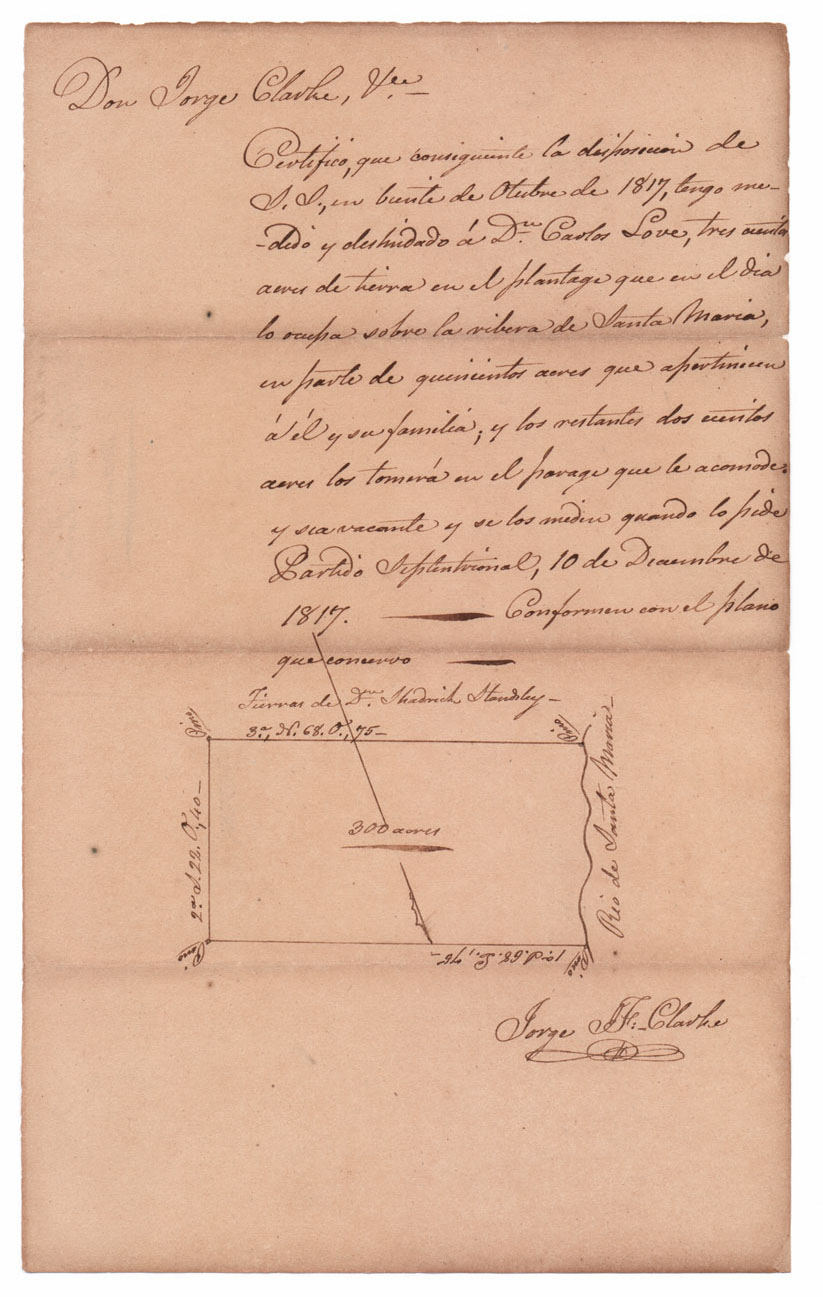 Don Jorge Clarke, &ce.
Certifico, que consiguiente la disposicion de
S. S., en biente de Otubre de 1817, tengo me-
-dido y deslindado á Dn. Carlos Love, tres cientos
acres de tierra en el plantage que en el dia
lo ocupa sobre la ribera de Santa Maria,
en parte de quinientos acres que apertinecen
á él y su familia; y los restantes dos cientos
acres los tomerá en el parage que le acomode
y sea vacante y se los meden quando lo pide
Partido Septentrional, 10 de Decembre de
1817. Conformen con el plano
que concervo
Tierras de Dn. Shadrick Standley
3a., N. 68. O., 75
Pino
Pino
Rio de Santa Maria
2a. S. 22. O., 40
300 acres
Pino
1a. S. 68. E.,
Pino
Jorge J. F. Clarke